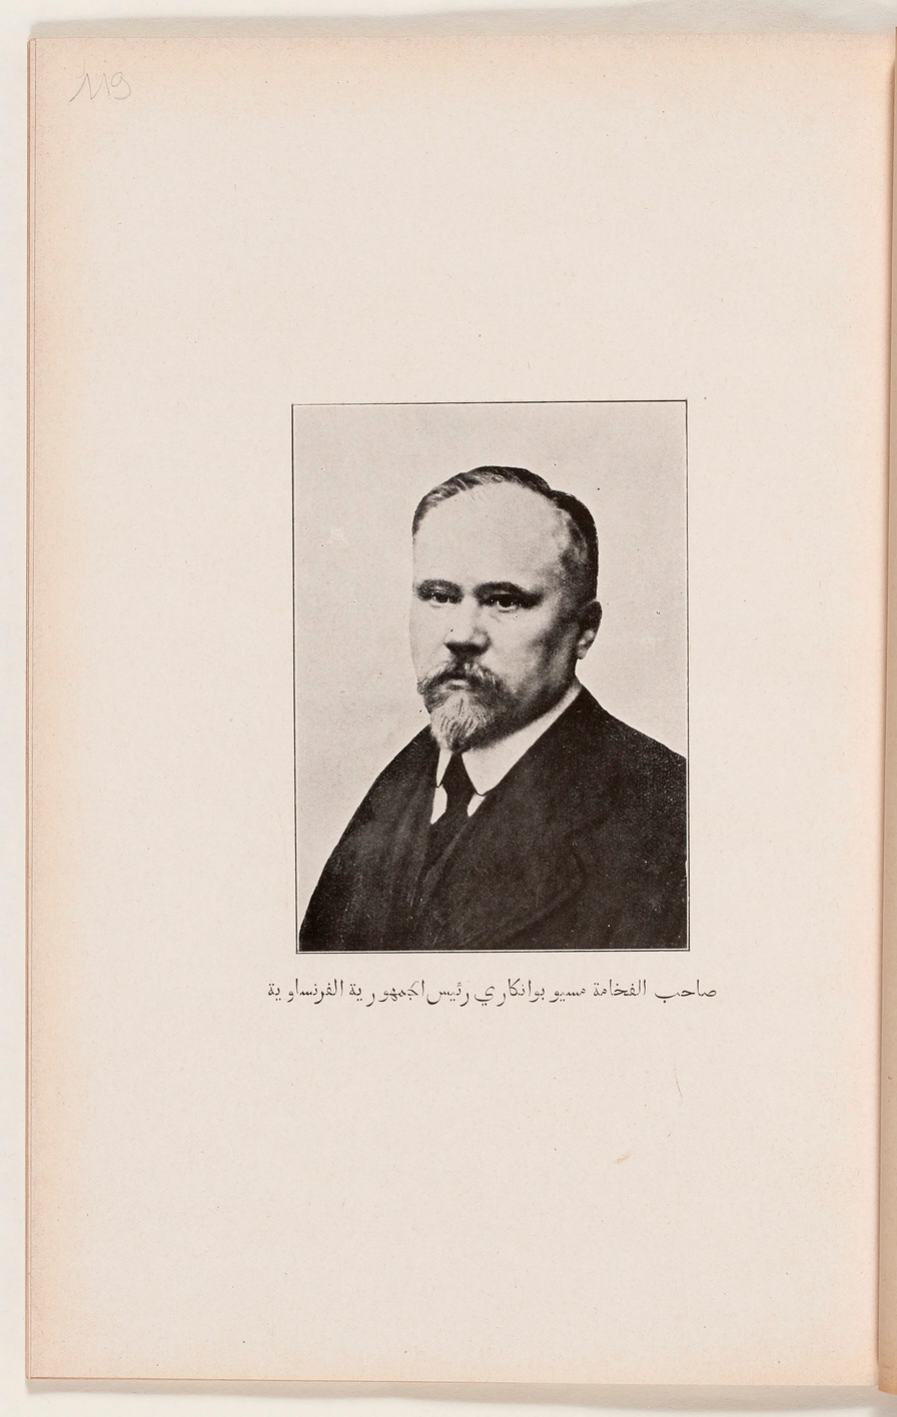 119
صاحب الفخامة مسيو بوانكاري رئيس الجمهورية الفرنساوية